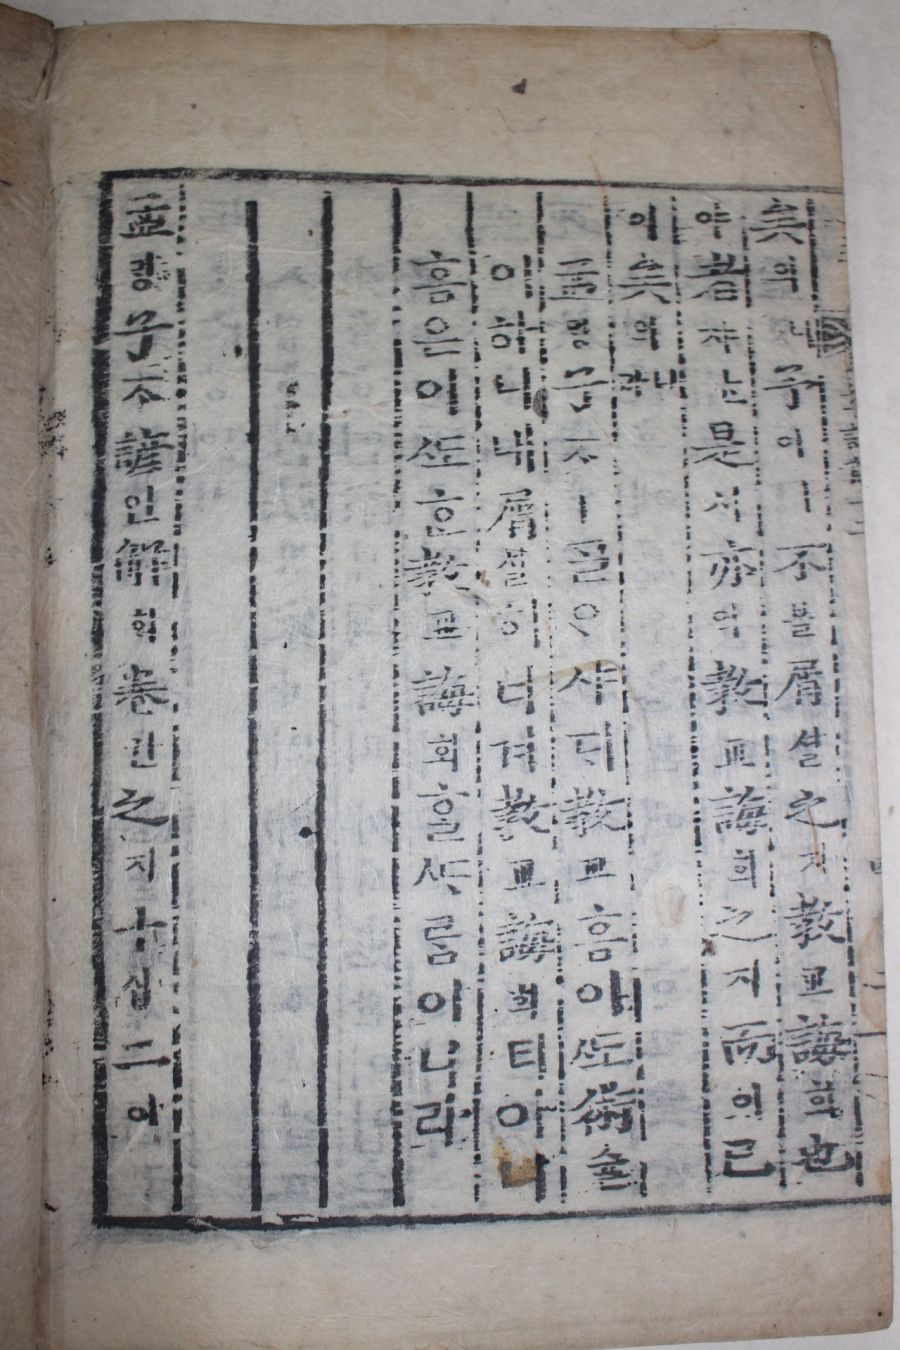 矣의니予여ㅣ不블屑셜之지敎교誨회也
야者쟈ᄂᆞᆫ是시亦역敎교誨회之지而이已
이矣의라
孟ᄆᆡᆼ子ᄌᆞㅣᄀᆞᆯᄋᆞ샤ᄃᆡ敎교홈애ᄯᅩ術슐
이하니내屑셜히너겨敎교誨회티아니
홈은이ᄯᅩᄒᆞᆫ敎교誨회ᄒᆞᆯᄯᆞᄅᆞᆷ이니라
孟ᄆᆡᆼ子ᄌᆞ諺언解ᄒᆡ卷권之지十십二이